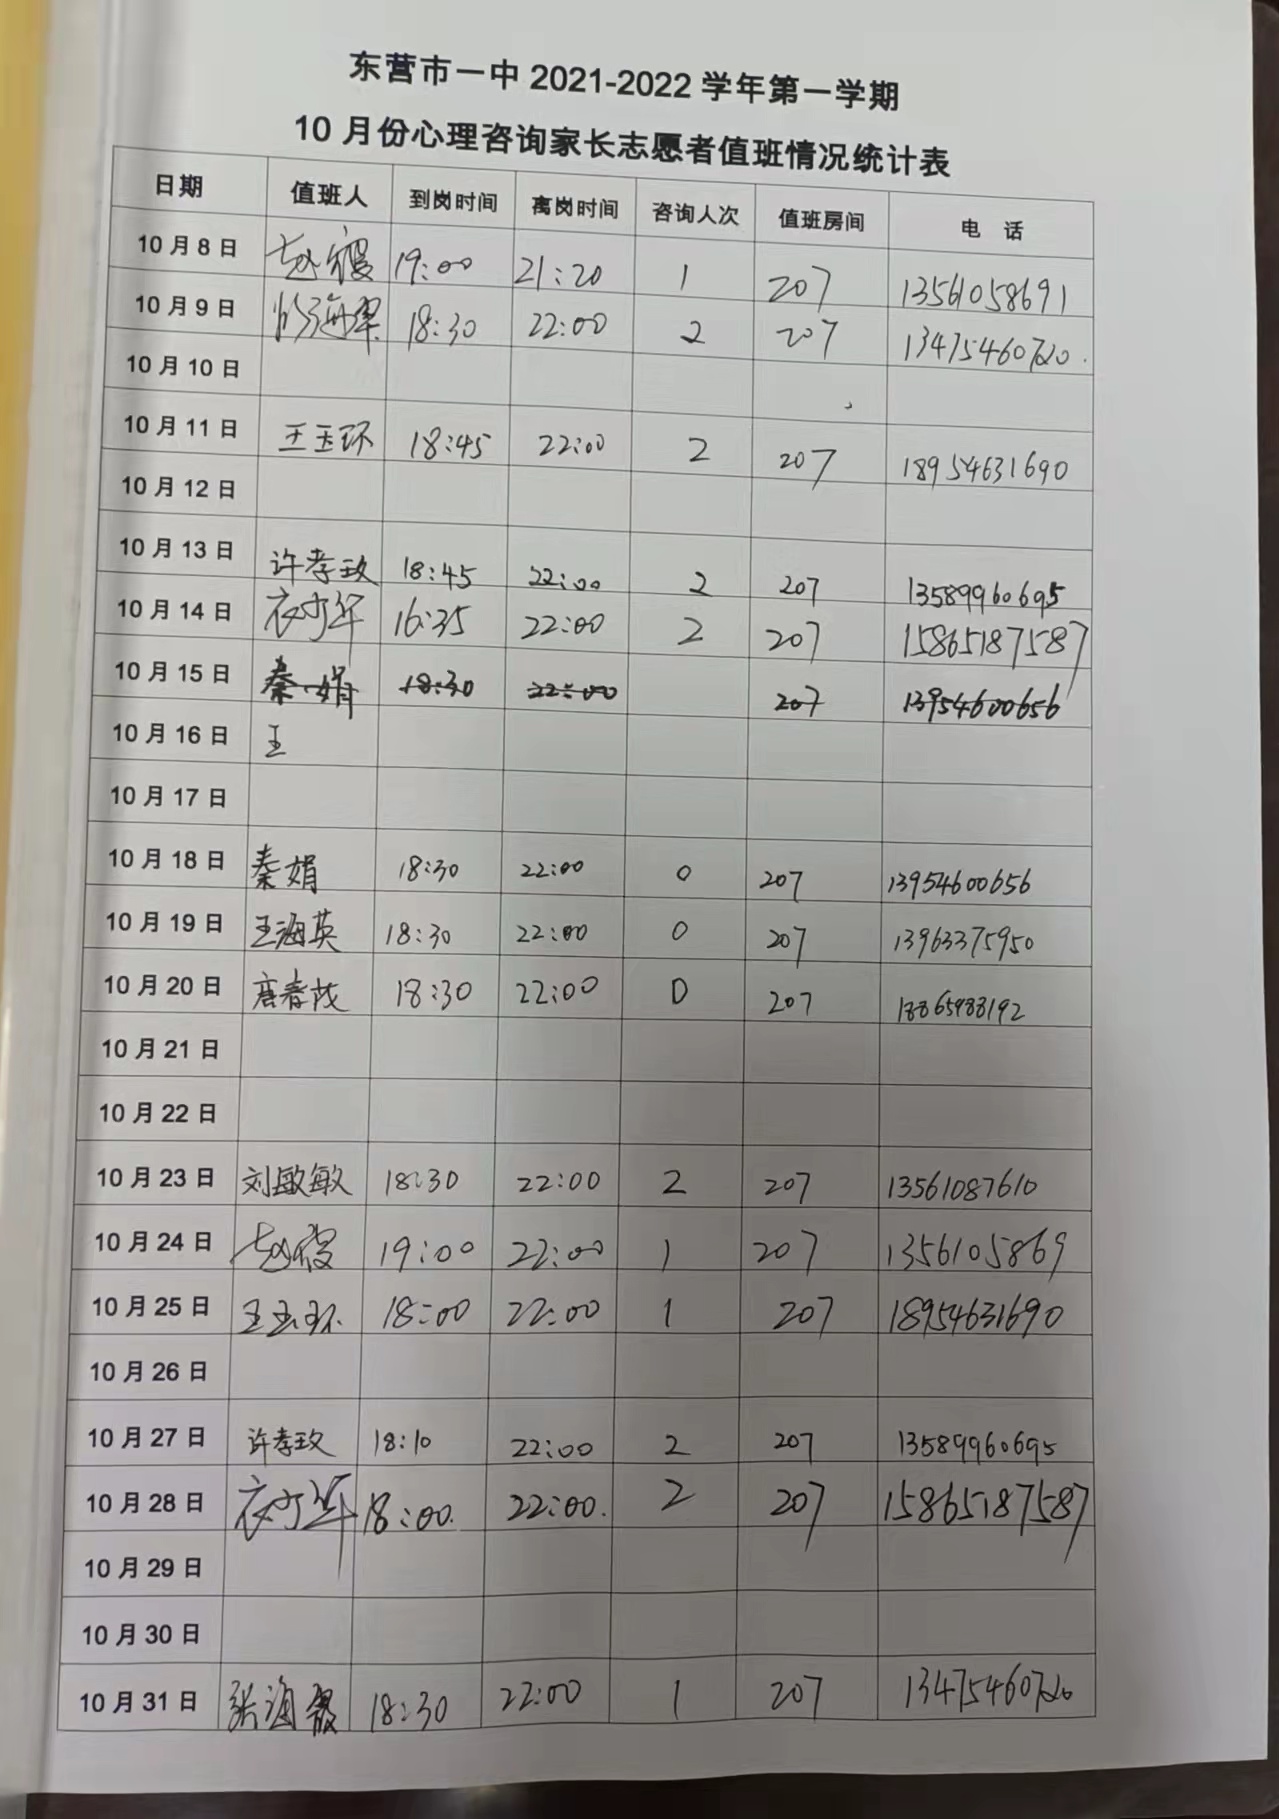 东营市一中 2021-2022 学年第一学期
10 月份心理咨询家长志愿者值班情况统计表
日期 值班人 到岗时间 离岗时间 咨询人次 值班房间 电 话
10 月 8 日 赵霞 19:00 21:20 1 207 13561058691
10 月 9 日 18:30 22:00 2 207
10 月 10 日
10 月 11 日 王玉环 18:45 22:00 2 207 18954631690
10 月 12 日
10 月 13 日 许孝玫 18:45 22:00 2 207 13589960695
10 月 14 日 衣少军 16:35 22:00 2 207 15865187587
10 月 15 日 秦娟 18:30 22:00 207 13954600656
10 月 16 日 王
10 月 17 日
10 月 18 日 秦娟 18:30 22:00 0 207 13954600656
10 月 19 日 王海英 18:30 22:00 0 207 13963375950
10 月 20 日 唐春茂 18:30 22:00 0 207
10 月 21 日
10 月 22 日
10 月 23 日 刘敏敏 18:30 22:00 2 207 13561087610
10 月 24 日 赵霞 19:00 22:00 1 207 1356105869
10 月 25 日 王玉环 18:00 22:00 1 207 18954631690
10 月 26 日
10 月 27 日 许孝玫 18:10 22:00 2 207 13589960695
10 月 28 日 衣少军 18:00. 22:00. 2 207 15865187587
10 月 29 日
10 月 30 日
10 月 31 日 张海霞 18:30 22:00 1 207